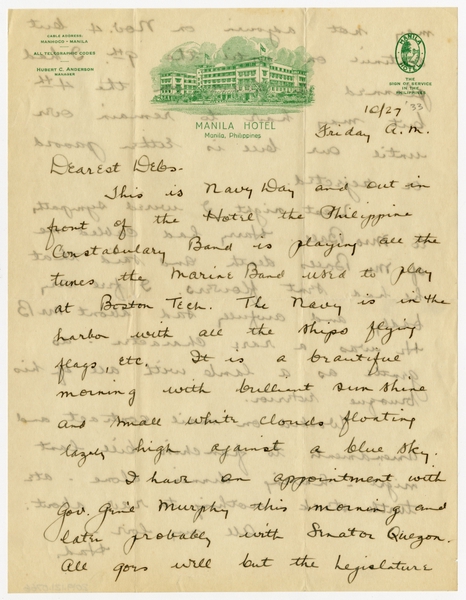 CABLE ADDRESS,
MANHOCO - MANILA
ALL TELEGRAPHIC CODES
HUBERT C. ANDERSON
MANAGER
MANILA HOTEL
Manila, Philippines
MANILA
HOTEL
THE
SIGN OF SERVICE
IN THE
PHILIPPINES
10/27/33
Friday A.M.
Dearest Debs-
This is Navy Day and out in
front of the Hotel the Philippine
Constabulary Band is playing all the
tunes the Marine Band used to play
at Boston Tech. The Navy is in the
harbor with all the ships flying
flags, etc. It is a beautiful
morning with brilliant sun shine
and small white clouds floating
lazely high against a blue sky.
I have an appointment with
Gov. Gen'l Murphy this morning and
later probably with Senator Quezon.
All goes well but the Legislature